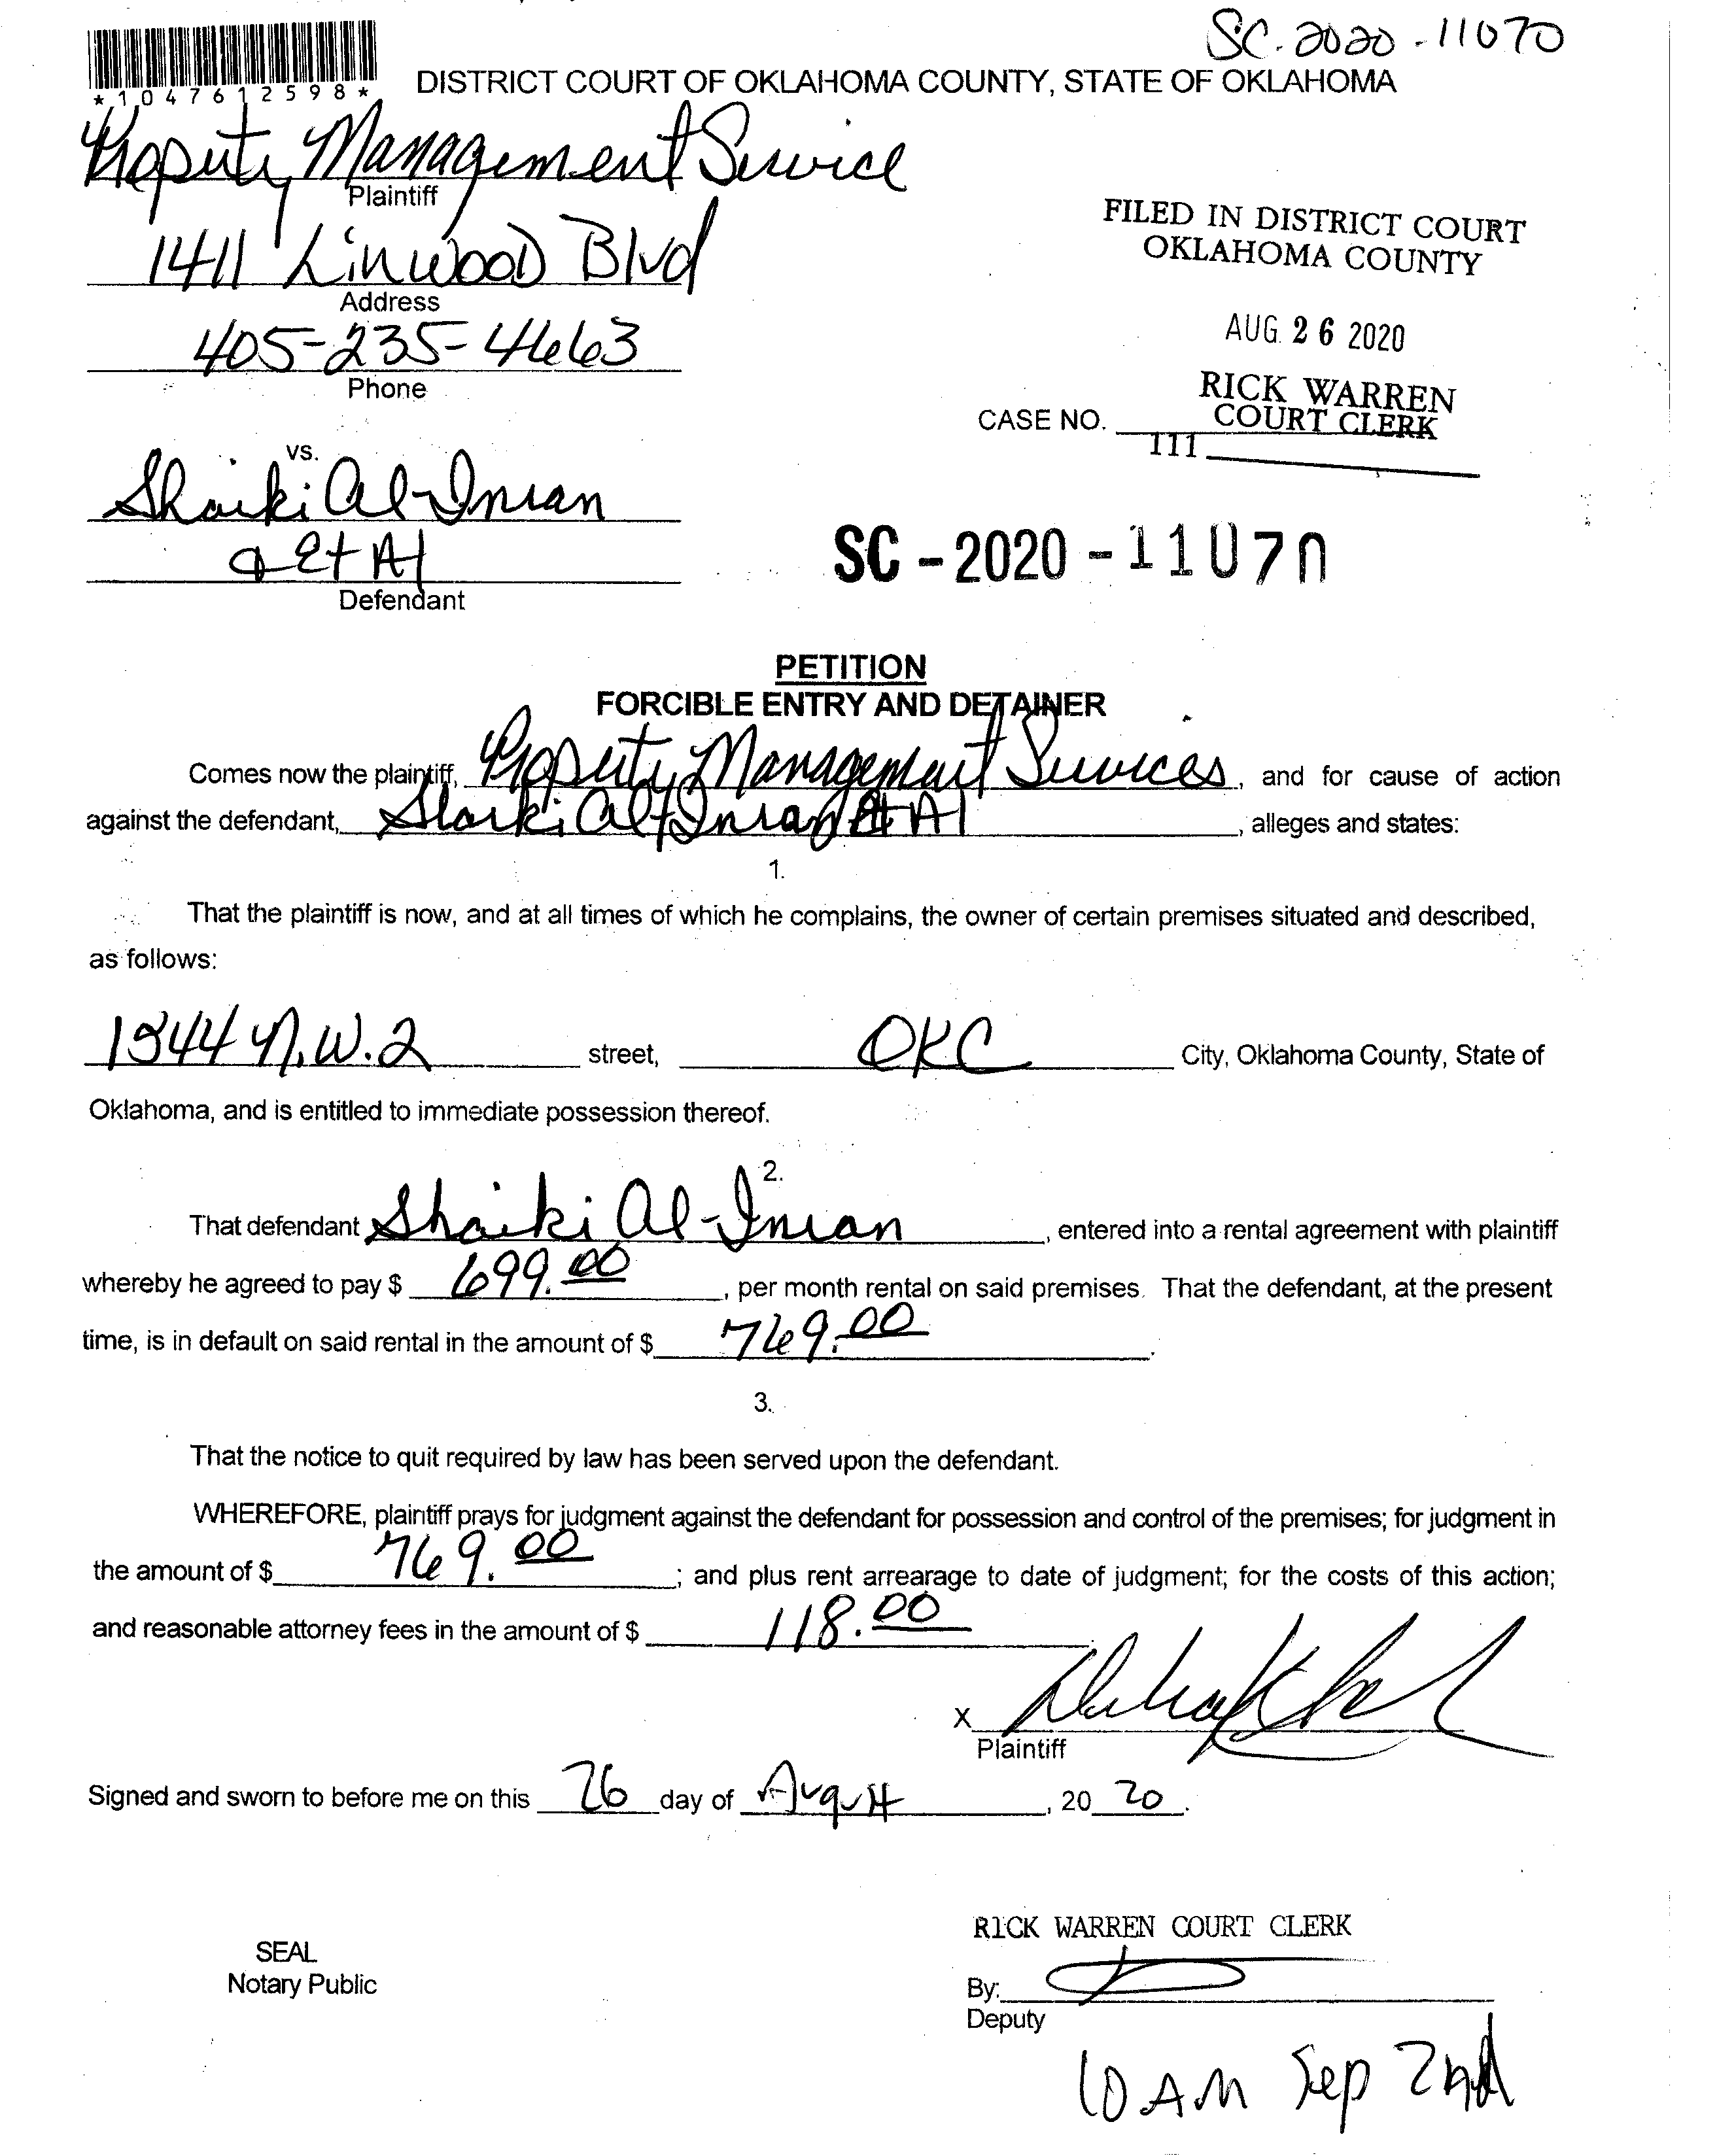 SC-2020-11070
*1047612598*
DISTRICT COURT OF OKLAHOMA COUNTY, STATE OF OKLAHOMA
Property Management Service
Plaintiff
1411 Linwood Blvd
Address
405-235-4663
Phone
FILED IN DISTRICT COURT
OKLAHOMA COUNTY
AUG 26 2020
RICK WARREN
COURT CLERK
CASE NO.
111
vs.
Shaiki Al-Inran
& Et Al
Defendant
SC-2020-11070
PETITION
FORCIBLE ENTRY AND DETAINER
Comes now the plaintiff, Property Management Services, and for cause of action
against the defendant, Al-Inran Et Al, alleges and states:
1.
That the plaintiff is now, and at all times of which he complains, the owner of certain premises situated and described,
as follows:
1344 N.W. 2 street, OKC City, Oklahoma County, State of
Oklahoma, and is entitled to immediate possession thereof.
2.
That defendant Shaiki Al-Inran, entered into a rental agreement with plaintiff
whereby he agreed to pay $ 699.00, per month rental on said premises. That the defendant, at the present
time, is in default on said rental in the amount of $ 769.00.
3.
That the notice to quit required by law has been served upon the defendant.
WHEREFORE, plaintiff prays for judgment against the defendant for possession and control of the premises; for judgment in
the amount of $ 769.00; and plus rent arrearage to date of judgment; for the costs of this action;
and reasonable attorney fees in the amount of $ 118.00.
X
Plaintiff
Signed and sworn to before me on this 26 day of August, 20 20.
RICK WARREN COURT CLERK
SEAL
Notary Public
By:
Deputy
10 AM Sep 2nd